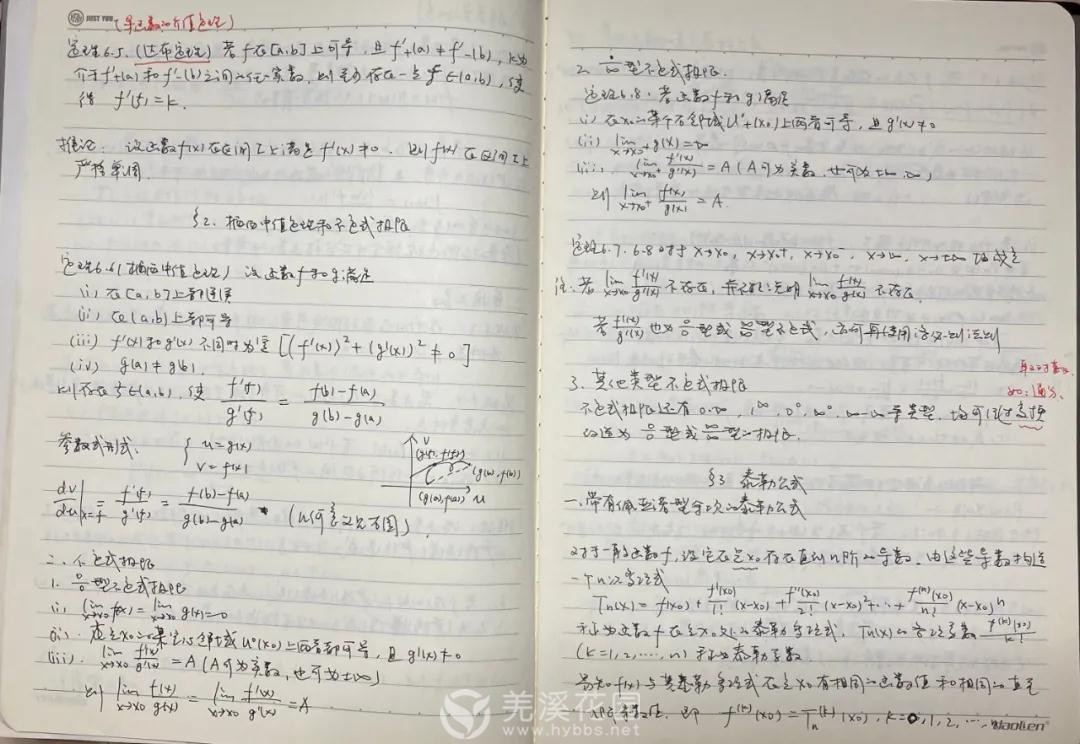 JUST YOU
(导函数的介值定理)
定理6.5.(达布定理) 若f在[a,b]上可导,且f'+(a)≠f'-(b),k为
介于f'+(a)和f'-(b)之间的任一实数,则至少存在一点ξ∈(a,b),使
得 f'(ξ)=k.
推论. 设函数f(x)在区间I上满足f'(x)≠0.则f(x)在区间I上
严格单调.
§2. 柯西中值定理和不定式极限
定理6.6(柯西中值定理) 设函数f和g满足
(i) 在[a,b]上都连续
(ii) 在(a,b)上都可导
(iii) f'(x)和g'(x)不同时为零 [(f'(x))²+(g'(x))²≠0]
(iv) g(a)≠g(b).
则存在ξ∈(a,b),使 f'(ξ)/g'(ξ) = (f(b)-f(a))/(g(b)-g(a))
参数式形式. { u=g(x)
v=f(x)
v
(g(ξ),f(ξ))
(g(b),f(b))
(g(a),f(a)) u
dv/du|x=ξ = f'(ξ)/g'(ξ) = (f(b)-f(a))/(g(b)-g(a)) (几何意义见右图).
二.不定式极限
1. 0/0型不定式极限
(i) lim x→x0 f(x)=lim x→x0 g(x)=0
(ii). 在点x0的某空心邻域U°(x0)上两者都可导,且g'(x)≠0
(iii) lim x→x0 f'(x)/g'(x)=A(A可为实数,也可为±∞)
则 lim x→x0 f(x)/g(x) = lim x→x0 f'(x)/g'(x) = A
2. 型不定式极限.
定理6.8.若函数f和g满足
(i) 在x0的某个右邻域U°+(x0)上两者可导,且g'(x)≠0
(ii) lim x→x0+ g(x)=∞
(iii). lim x→x0+ f'(x)/g'(x)=A(A可为实数,也可为±∞,∞)
则 lim x→x0+ f(x)/g(x)=A.
定理6.7.6.8对于x→x0,x→x0+,x→x0-,x→∞,x→±∞均成立
注.若 lim x→x0 f'(x)/g'(x) 不存在,并不能说明 lim x→x0 f(x)/g(x) 不存在.
若f'(x)/g'(x)也为0/0型或∞/∞型不定式,可再使用洛必达法则
取对数
∞-∞:通分.
3. 其他类型不定式极限
不定式极限还有0·∞,1^∞,0^0,∞^0,∞-∞等类型.均可经过变换
改造为0/0型或∞/∞型的极限.
§3 泰勒公式
一.带有佩亚诺型余项的泰勒公式
对于一般函数f,设它在点x0存在直到n阶的导数.由这些导数构造
一个n次多项式
Tn(x)=f(x0)+f'(x0)/1!(x-x0)+f''(x0)/2!(x-x0)²+…+f^(n)(x0)/n!(x-x0)^n
称为函数f在点x0处的泰勒多项式,Tn(x)的各项系数f^(k)(x0)/k!
(k=1,2,…,n)称为泰勒系数.
易知f(x)与其泰勒多项式在点x0有相同的函数值和相同的直至
n阶导数值,即 f^(k)(x0)=Tn^(k)(x0),k=0,1,2,…,
羌溪花园
www.hybbs.net